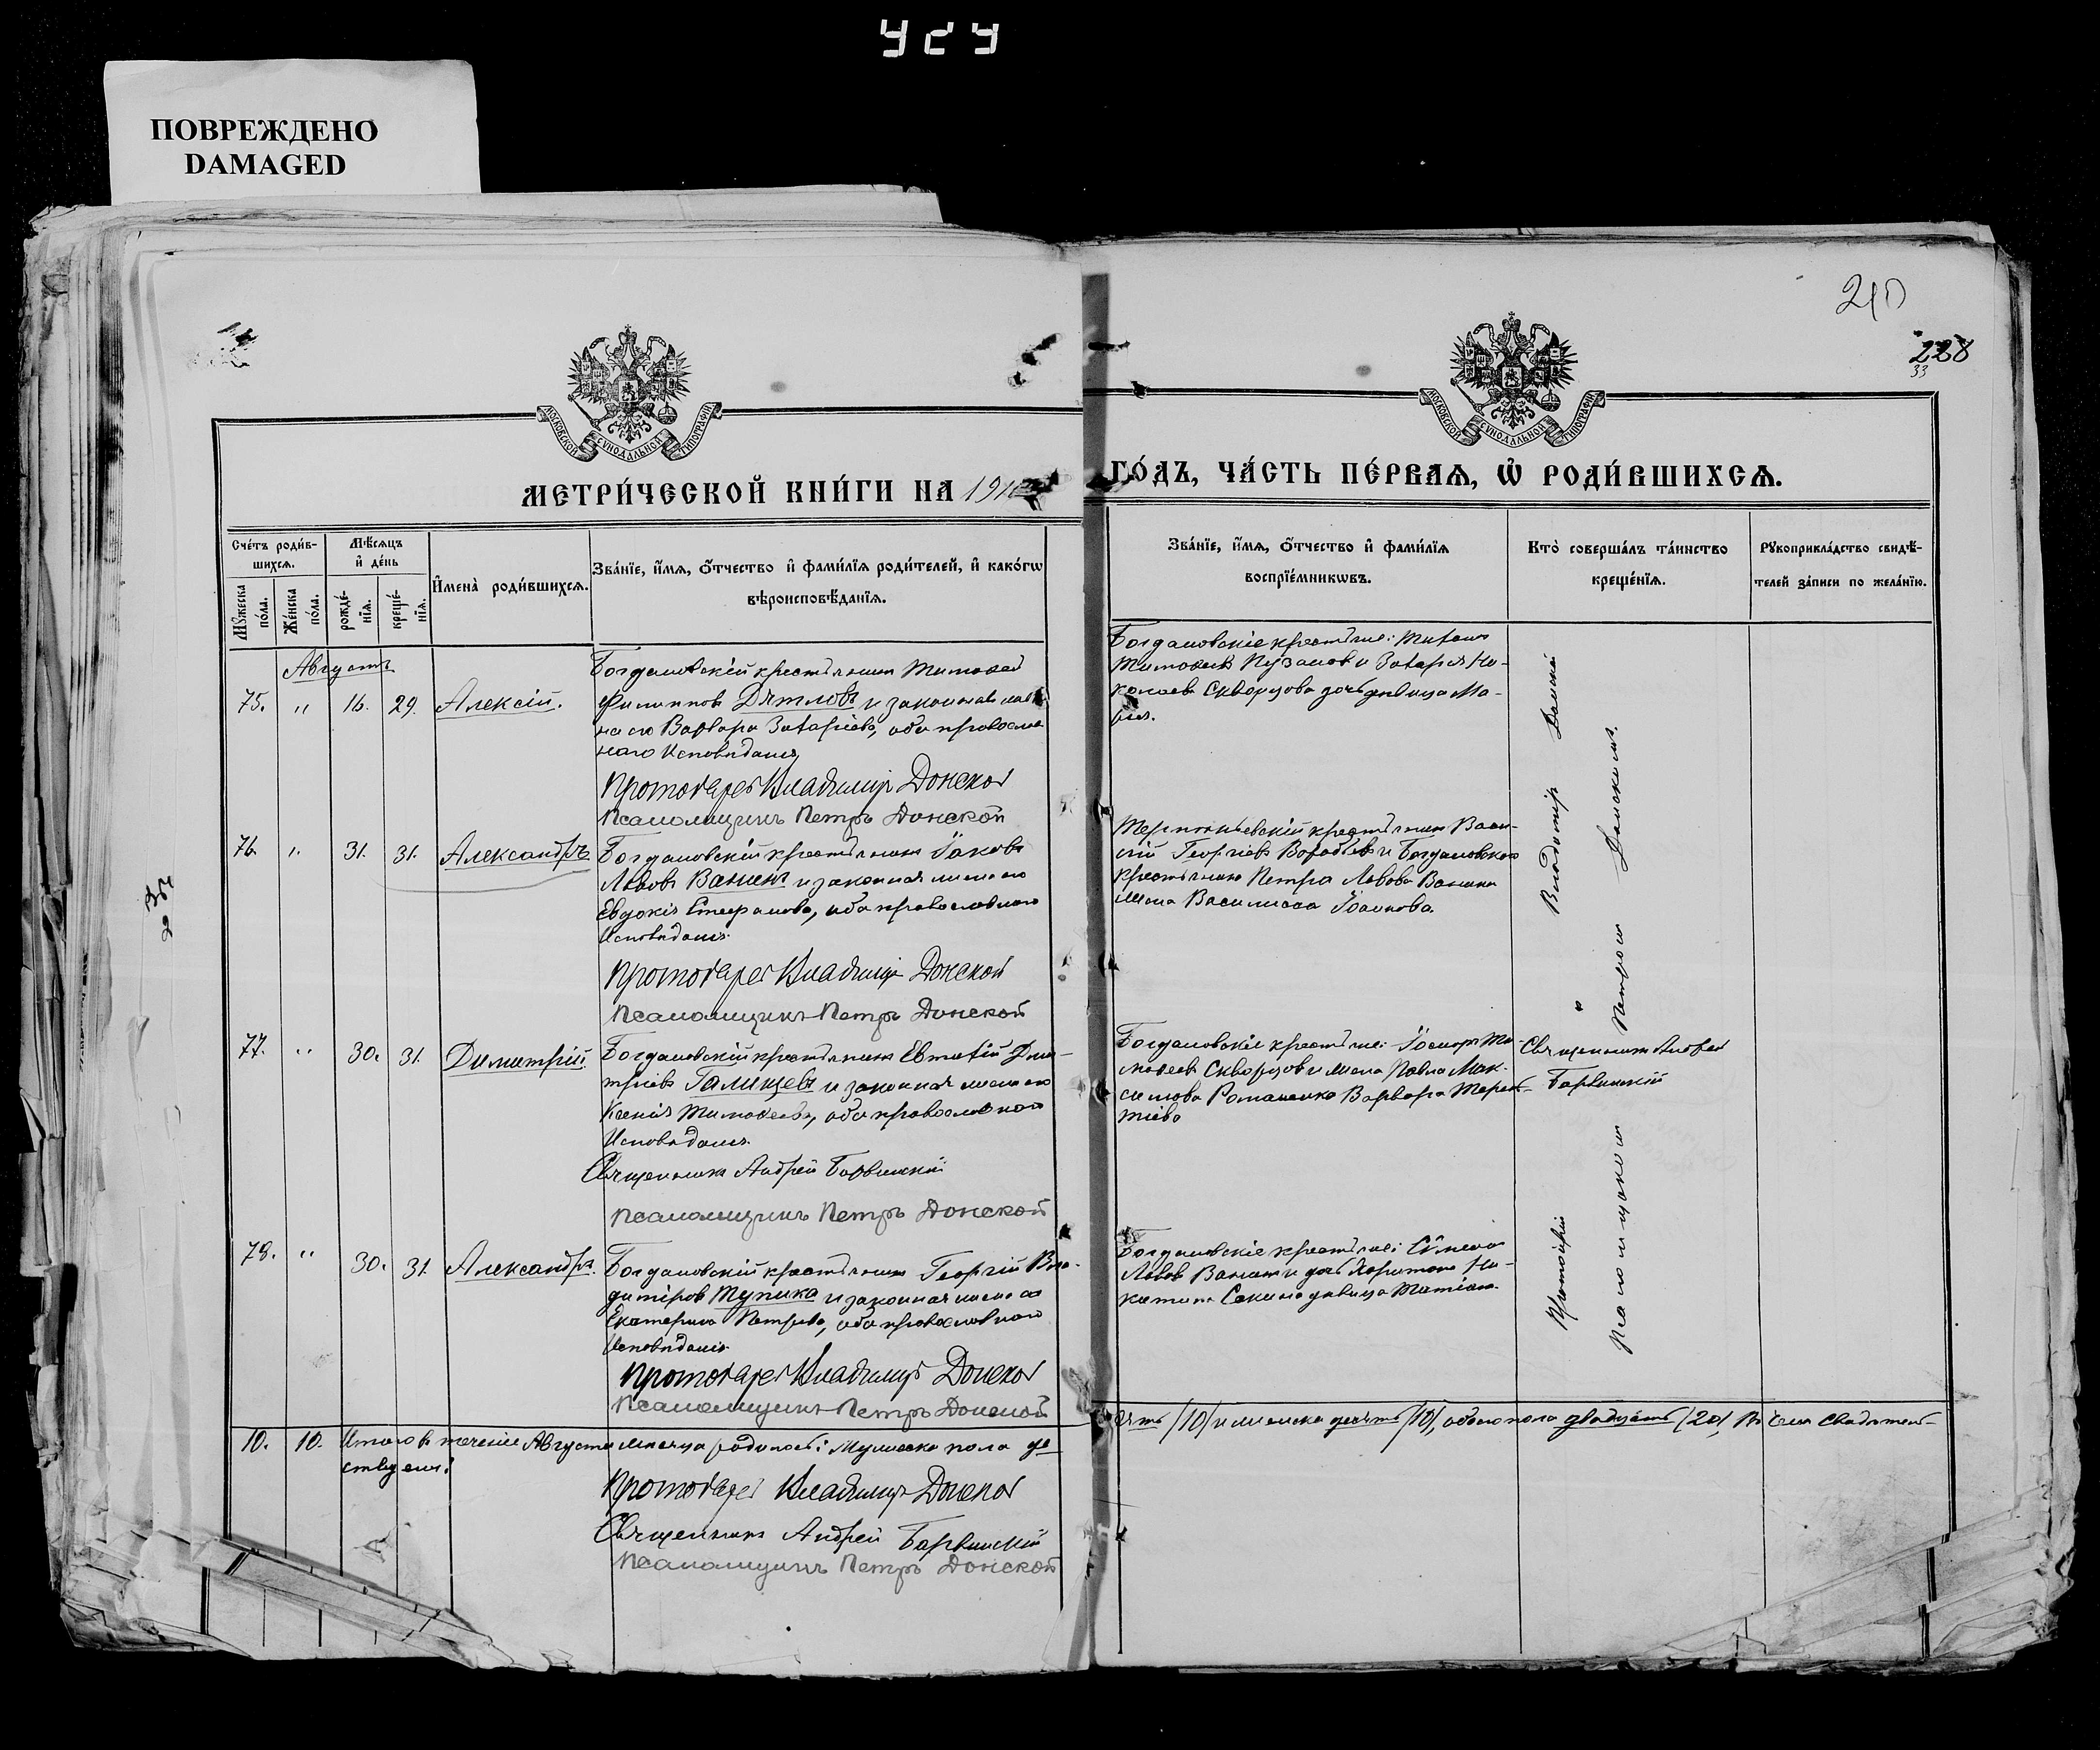 ПОВРЕЖДЕНО
DAMAGED
210
228
33
МОСКОВСКОЙ СѴНОДАЛЬНОЙ ТИПОГРАФІИ
МОСКОВСКОЙ СѴНОДАЛЬНОЙ ТИПОГРАФІИ
МЕТРИ́ЧЕСКОЙ КНИ́ГИ НА 1910
ГО́ДЪ, ЧА́СТЬ ПЕ́РВАѦ, Ѡ҆ РОДИ́ВШИХСѦ.
Сче́тъ роди́в-
шихсѧ.
Мѣ́сѧцъ
и҆ де́нь
Мꙋ́жеска по́ла.
Же́нска по́ла.
рожде́-нїѧ.
креще́-нїѧ.
И҆мена̀ роди́вшихсѧ.
Зва́нїе, и҆́мѧ, ѻ҆́тчество и҆ фами́лїѧ роди́телей, и҆ како́гѡ
вѣроисповѣ́данїѧ.
Зва́нїе, и҆́мѧ, ѻ҆́тчество и҆ фами́лїѧ
воспрїе́мникѡвъ.
Кто̀ соверша́лъ та́инство
креще́нїѧ.
Рꙋкоприкла́дство свидѣ́-
телей за́писи по жела́нїю.
Августъ
75. " 16. 29. Алексій.
Богдановскій крестьянинъ Тимофей
Филиппов Дятловъ и законная же-
на его Варвара Захаріева, оба православ
наго Исповѣданія
Протоіерей Владиміръ Донской
Псаломщикъ Петръ Донской
Богдановскіе крестьяне: Тихонъ
Тимофеевъ Пузанов и Захарія Ни-
колаева Скворцова дочь дѣвица Ма-
рія.
76. " 31. 31. Александръ
Богдановскій крестьянинъ Іаковъ
Львовъ Ванинъ и законная жена его
Евдокія Стефанова, оба православнаго
Исповѣданія.
Протоіерей Владиміръ Донской
Псаломщикъ Петръ Донской
крестьянинъ Васи-
лій Георгіевъ Воробьевъ и Богдановскаго
крестьянина Петра Львова Ванина
жена Василисса Іоаннова.
77. " 30. 31. Димитрій.
Богдановскій крестьянинъ Евтихій Дми-
тріевъ Галицевъ и законная жена его
Ксенія Тимофеева, оба православнаго
Исповѣданія.
Священникъ Андрей Барвинскій
Псаломщикъ Петръ Донской
Богдановскіе крестьяне: Іосифъ Ти-
мофеевъ Скворцовъ и жена Павла Мак-
симова Романенко Варвара Терен-
тіева
Священникъ Андрей
Барвинскій
78. " 30. 31. Александръ.
Богдановскій крестьянинъ Георгій Вла-
диміров Тупика и законная жена его
Екатерина Петрова, оба православнаго
Исповѣданія.
Протоіерей Владиміръ Донской
Псаломщикъ Петръ Донской
Богдановскіе крестьяне: Сѵмеонъ
Львов Ванинъ и дочь Харитона Ни-
китина дѣвица Татіана.
Протоіерей Владиміръ Донской
Псаломщикомъ Петромъ Донскимъ.
10. 10. Итого въ теченіе Августа мѣсяца родилось: Мужеска пола де
сять /10/ и женска десять /10/, обоего пола двадцать /20/, въ чемъ свидѣтель-
ствуемъ:
Протоіерей Владиміръ Донской
Священникъ Андрей Барвинскій
Псаломщикъ Петръ Донской